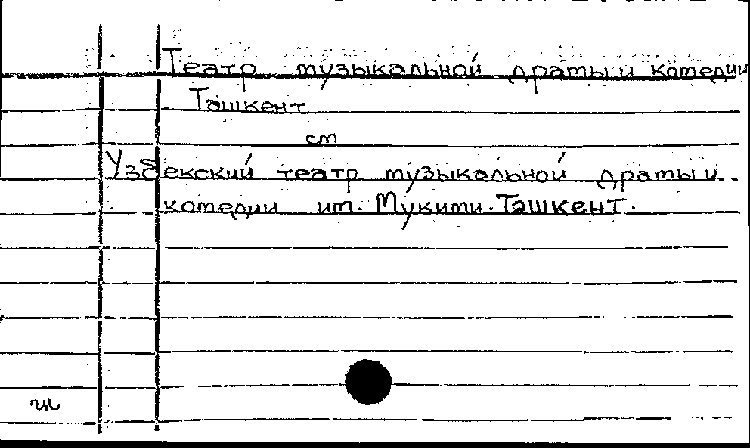 Театр музыкальной драмы и комедии
Ташкент
см
Узбекский театр музыкальной драмы и
комедии им. Мукими. Ташкент.